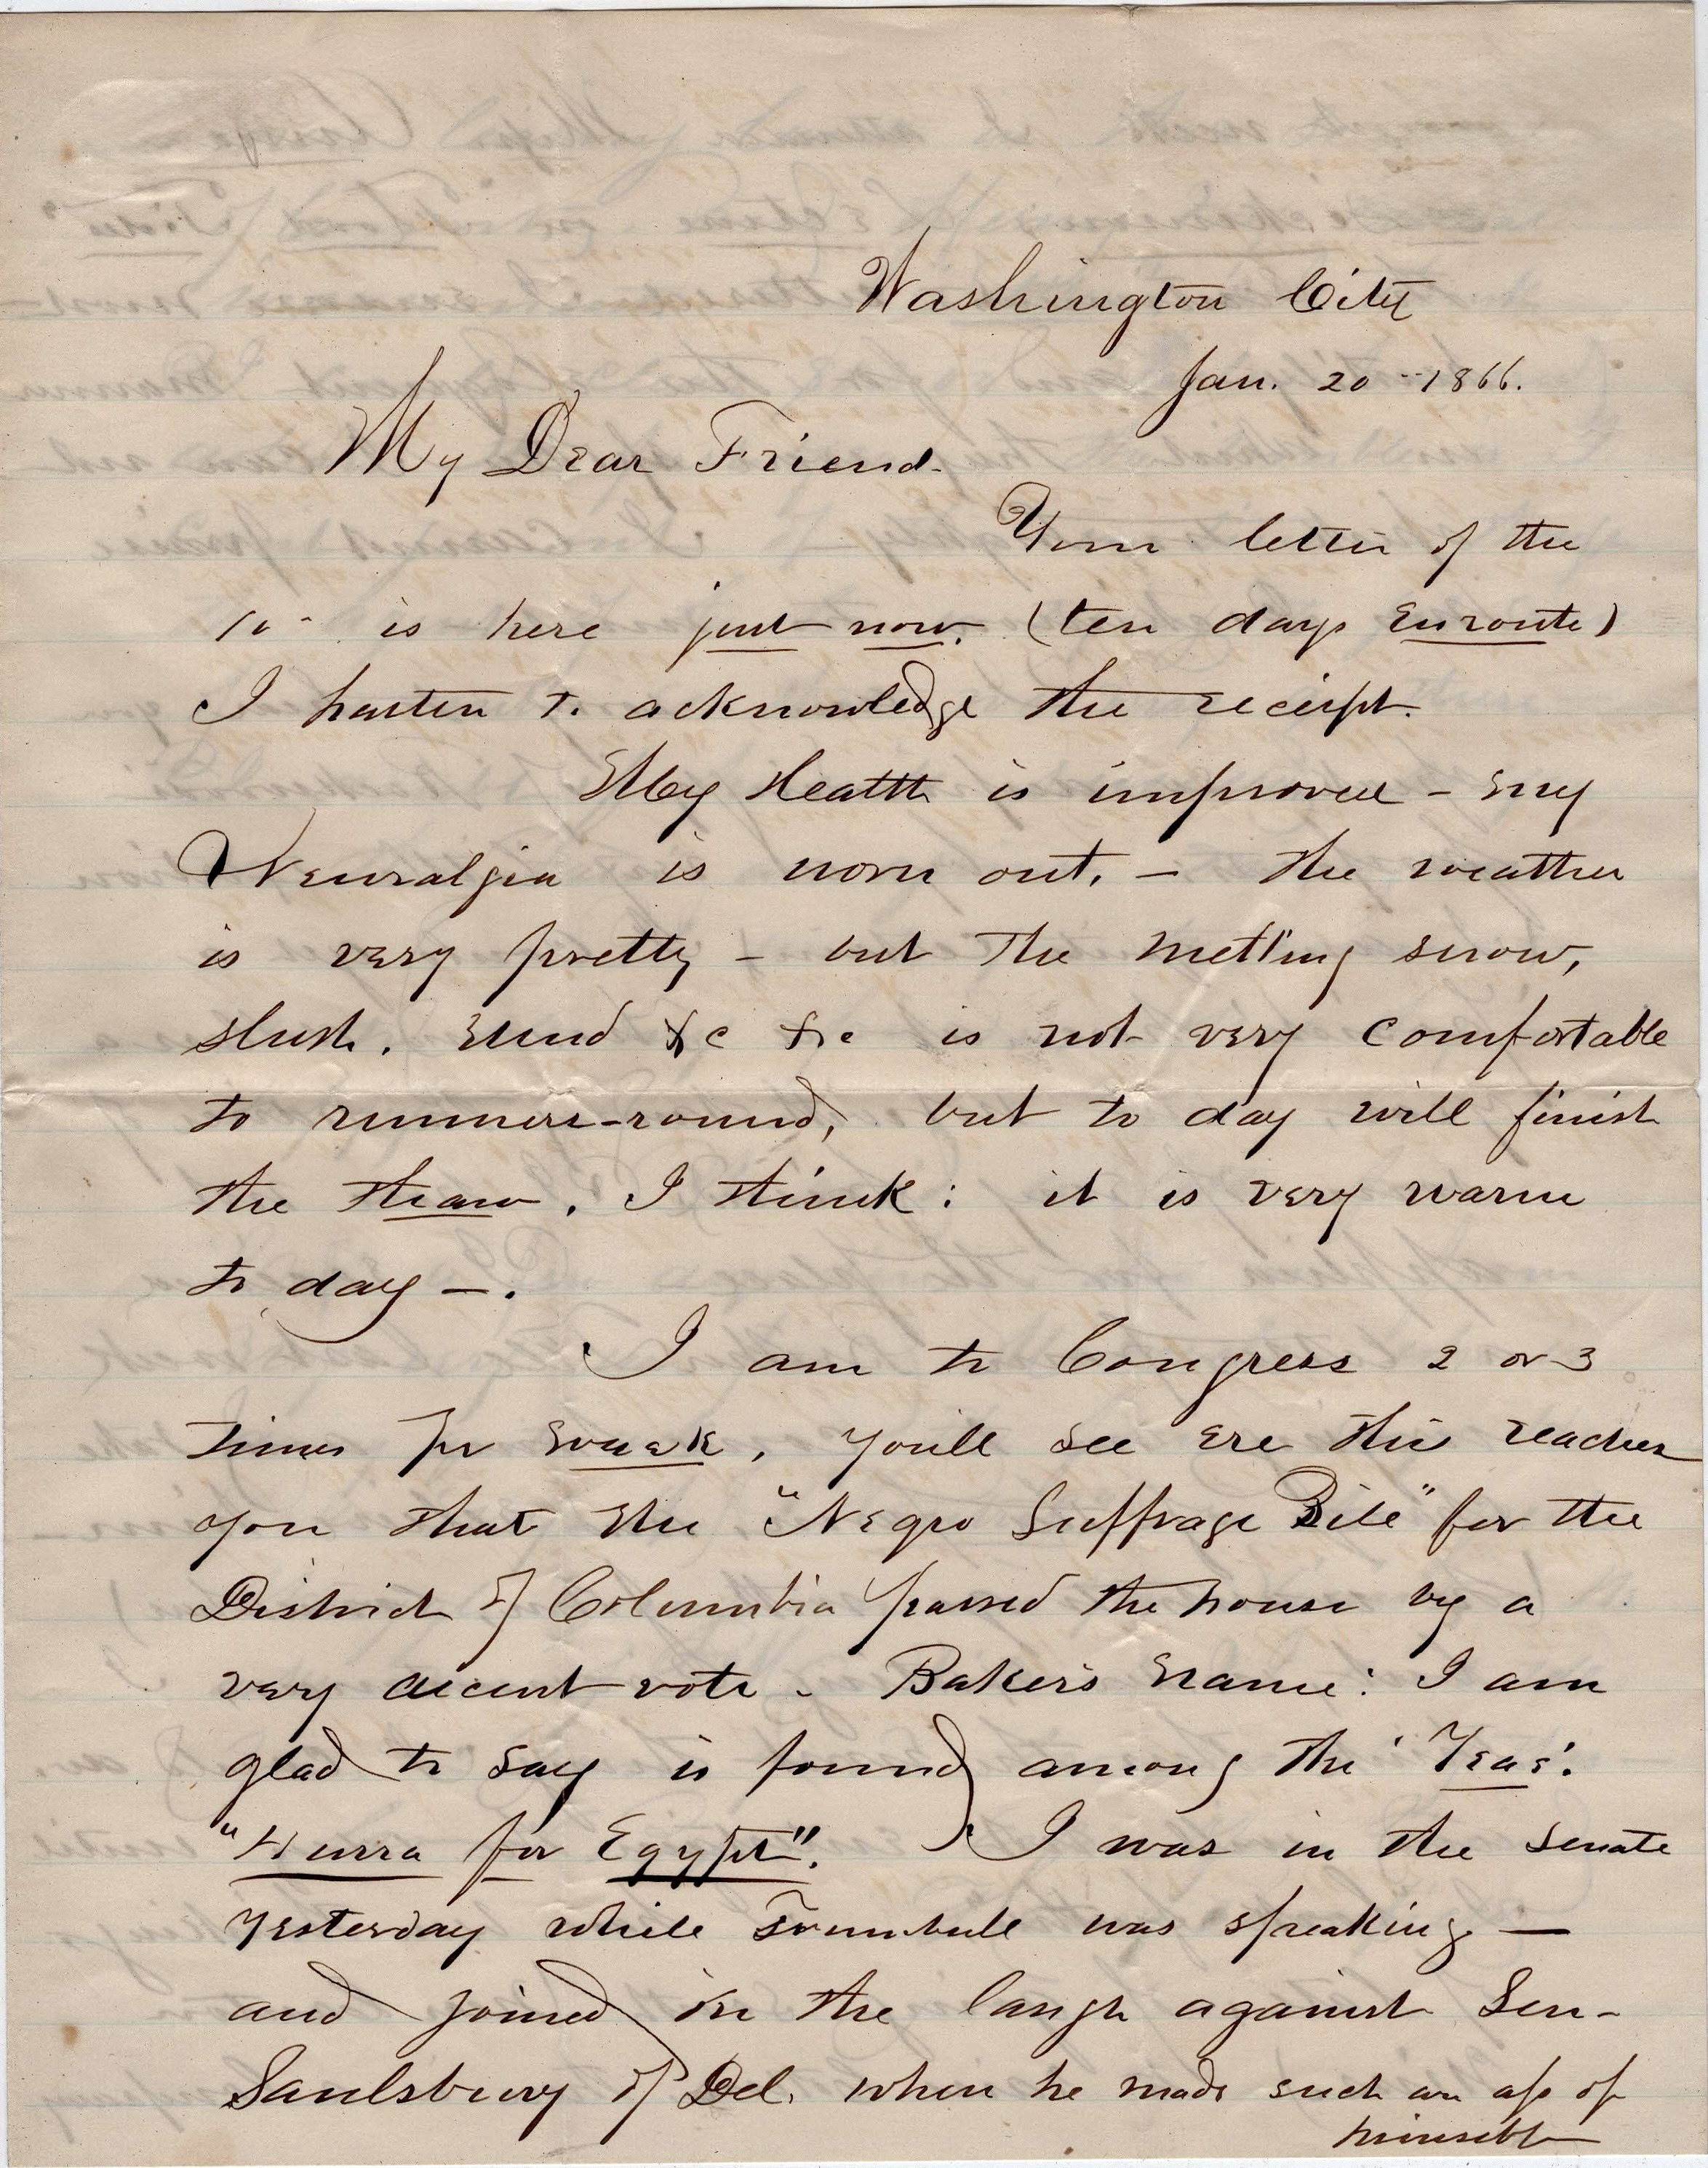 Washington City
Jan. 20 - 1866.
My Dear Friend.
Your letter of the
10 - is here just now. (ten days Enroute)
I hasten to acknowledge the receipt.
My Health is improved - my
Neuralgia is worn out. - the weather
is very pretty - but the melting snow,
slush, mud &c &c is not very comfortable
to runners-round, but to day will finish
the thaw, I think: it is very warm
to day -.
I am to Congress 2 or 3
times pr week, you'll see ere this reaches
you that the "Negro Suffrage Bill" for the
District of Columbia passed the house by a
very decent vote - Baker's name: I am
glad to say is found among the 'Yeas'.
"Hurra for Egypt". I was in the Senate
yesterday while Trumbull was speaking —
and joined in the laugh against Sen-
Saulsbury of Del. when he made such an ass of
himself